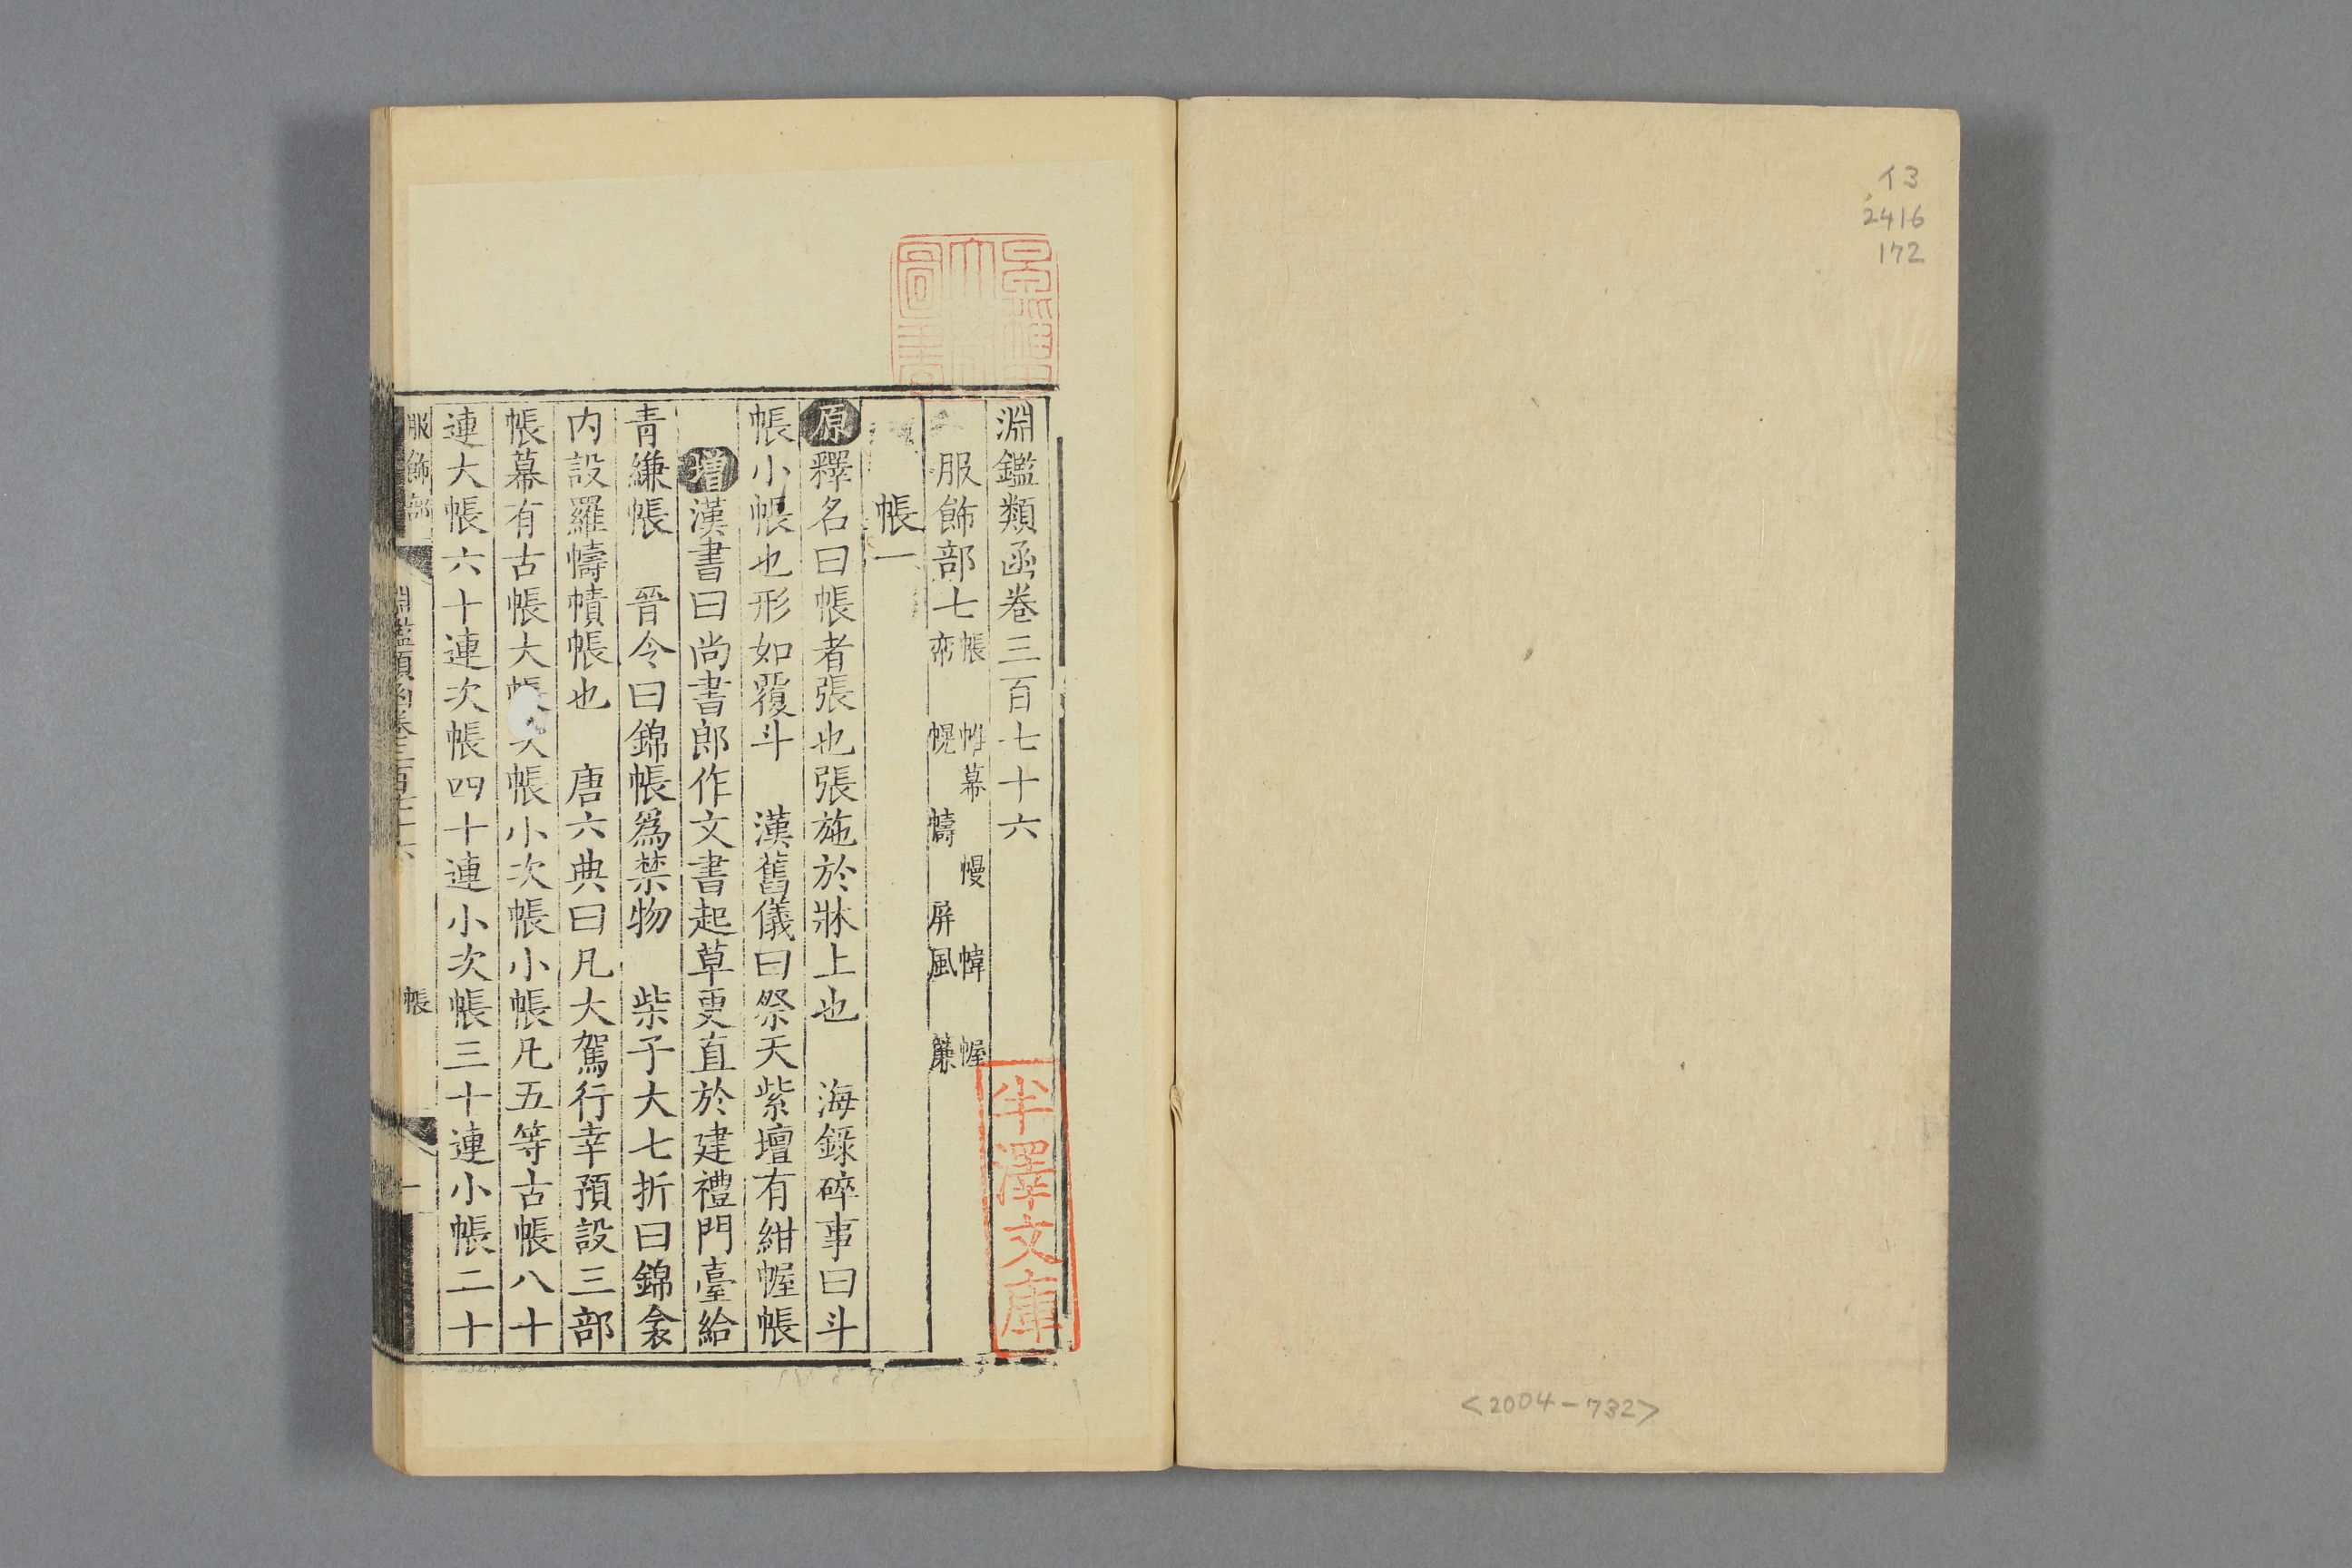 イ3
2416
172
<2004-732>
淵鑑類函卷三百七十六
服飾部七 帳 帷幕 幔 幃 幄
帟 幌 幬 屏風 簾
帳一
原釋名曰帳者張也張施於牀上也 海錄碎事曰斗
帳小帳也形如覆斗 漢舊儀曰祭天紫壇有紺幄帳
增漢書曰尚書郎作文書起草更直於建禮門臺給
青縑帳 晉令曰錦帳爲禁物 柴子大七折曰錦衾
内設羅幬幘帳也 唐六典曰凡大駕行幸預設三部
帳幕有古帳大帳次帳小次帳小帳凡五等古帳八十
連大帳六十連次帳四十連小次帳三十連小帳二十
服飾部 淵鑑類函卷三百七十六 帳 一
半澤文庫